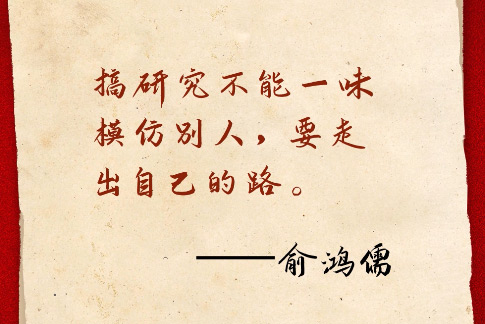 搞研究不能一味
模仿别人，要走
出自己的路。
——俞鸿儒